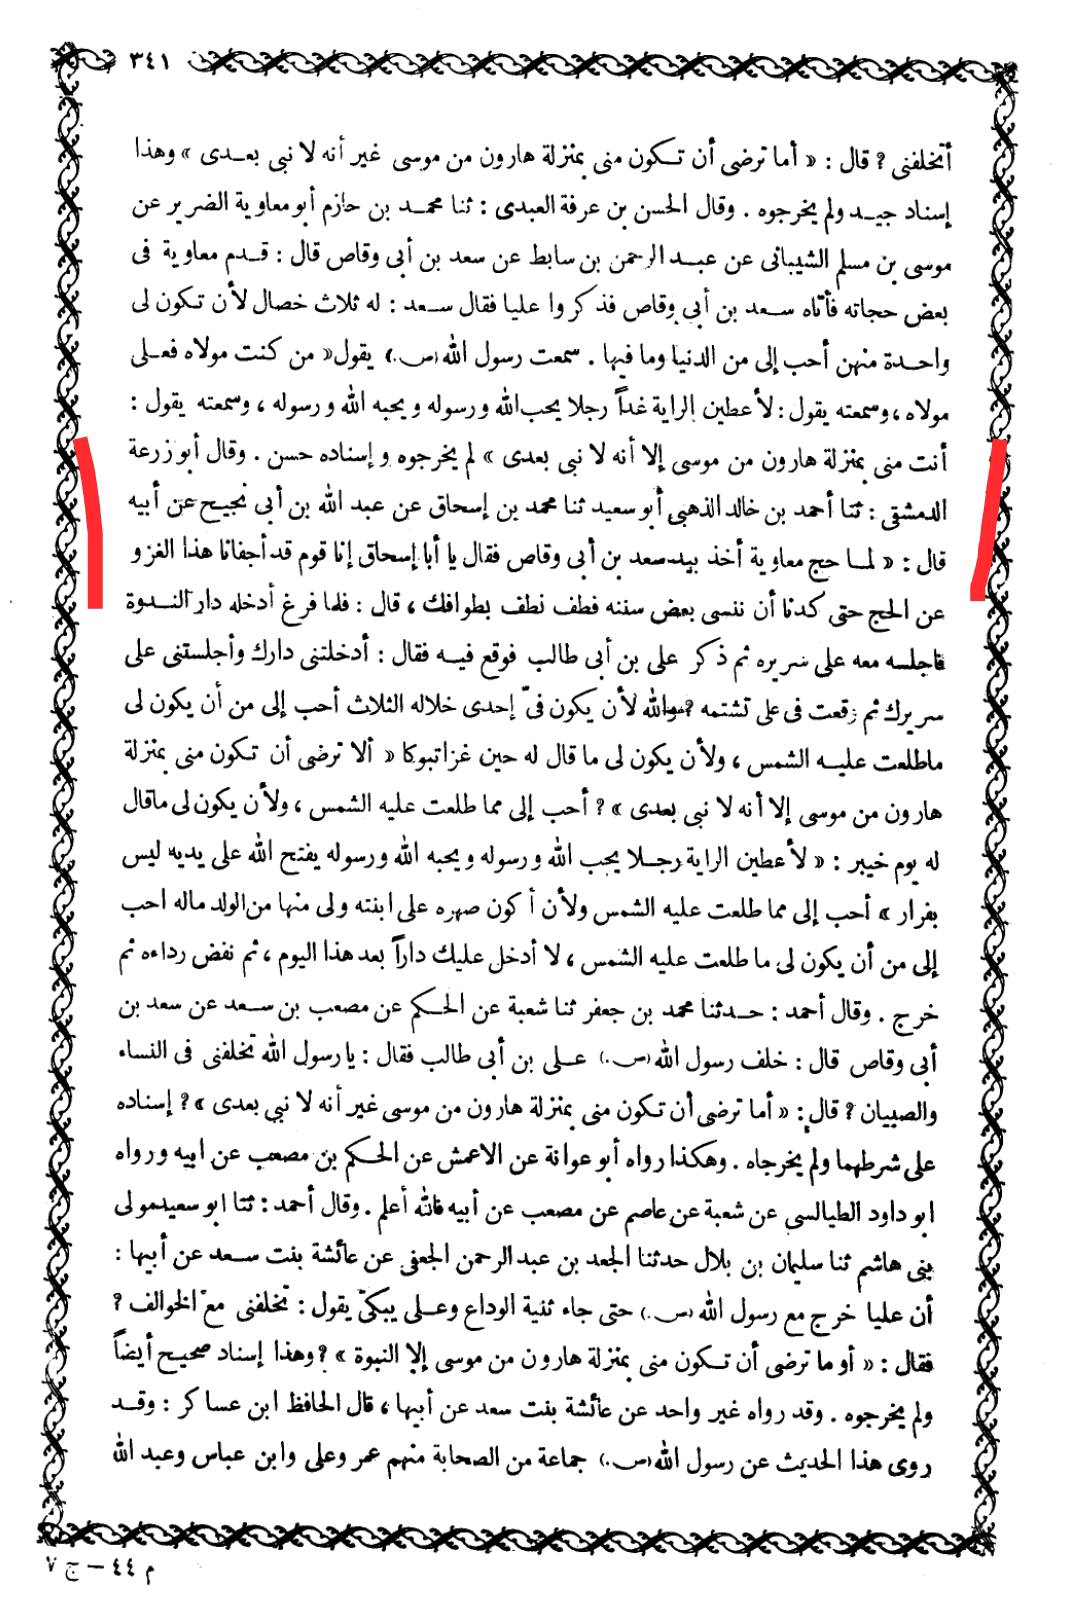 ٣٤١
أتخلفنى ? قال : « أما ترضى أن تـكون منى بمنزلة هارون من موسى غير أنه لا نبى بعـدى » وهذا
إسناد جيـد ولم يخرجوه . وقال الحسن بن عرفة العبدى : ثنا محمـد بن حازم أبو معاوية الضرير عن
موسى بن مسلم الشيبانى عن عبـد الرحمن بن سابط عن سعد بن أبى وقاص قال : قـدم معاوية فى
بعض حجاته فأتاه سـعد بن أبى وقاص فذكروا عليا فقال سـعد : له ثلاث خصال لأن تـكون لى
واحـدة منهن أحب إلى من الدنيا وما فيها . سمعت رسول الله (س.) يقول « من كنت مولاه فعـلى
مولاه ، وسمعته يقول : لأعطين الراية غداً رجلا يحب الله ورسوله ويحبه الله ورسوله ، وسمعته يقول :
أنت منى بمنزلة هارون من موسى إلا أنه لا نبى بعدى » لم يخرجوه وإسناده حسن . وقال أبو زرعة
الدمشقى : ثنا أحمد بن خالد الذهبى أبو سعيد ثنا محمد بن إسحاق عن عبد الله بن أبى نجيـح عن أبيه
قال : « لمـا حج معاوية أخذ بيد سعد بن أبى وقاص فقال يا أبا إسحاق إنا قوم قد أجفانا هذا الغزو
عن الحج حتى كدنا أن ننسى بعض سننه فطف نطف بطوافك ، قال : فلما فرغ أدخله دار النـدوة
فاجلسه معه على سريره ثم ذكر على بن أبى طالب فوقع فيـه فقال : أدخلتنى دارك وأجلستنى على
سريرك ثم وقعت فى على تشتمه ? والله لأن يكون فىّ إحدى خلاله الثلاث أحب إلى من أن يكون لى
ماطلعت عليـه الشمس ، ولأن يكون لى ما قال له حين غزا تبوكا « ألا ترضى أن تـكون منى بمنزلة
هارون من موسى إلا أنه لا نبى بعدى » ? أحب إلى مما طلعت عليه الشمس ، ولأن يكون لى ماقال
له يوم خيبر : « لأعطين الراية رجـلا يحب الله ورسوله ويحبه الله ورسوله يفتح الله على يديه ليس
بفرار » أحب إلى مما طلعت عليه الشمس ولأن أكون صهره على ابنته ولى منها من الولد ماله احب
إلى من أن يكون لى ما طلعت عليه الشمس ، لا أدخل عليك داراً بعد هذا اليوم ، ثم نفض رداءه ثم
خرج . وقال أحمد : حـدثنا محمد بن جعفر ثنا شعبة عن الحـكم عن مصعب بن سـعد عن سعد بن
أبى وقاص قال : خلف رسول الله (س.) عـلى بن أبى طالب فقال : يا رسول الله تخلفنى فى النساء
والصبيان ? قال : « أما ترضى أن تـكون منى بمنزلة هارون من موسى غير أنه لا نبى بعدى » ? إسناده
على شرطهما ولم يخرجاه . وهكذا رواه أبو عوانة عن الاعمش عن الحـكم بن مصعب عن ابيه ورواه
ابو داود الطيالسى عن شعبة عن عاصم عن مصعب عن أبيه فالله أعلم . وقال أحمد : ثنا ابو سعيد مولى
بنى هاشم ثنا سليمان بن بلال حدثنا الجعد بن عبد الرحمن الجعفى عن عائشة بنت سـعد عن أبيها :
أن عليا خرج مع رسول الله (س.) حتى جاء ثنية الوداع وعـلى يبكى يقول : تخلفنى مع الخوالف ?
فقال : « أو ما ترضى أن تـكون منى بمنزلة هارون من موسى إلا النبوة » ? وهذا إسناد صحيـح أيضاً
ولم يخرجوه . وقد رواه غير واحد عن عائشة بنت سعد عن أبيها ، قال الحافظ ابن عساكر : وقـد
روى هذا الحديث عن رسول الله (س.) جماعة من الصحابة منهم عمر وعلى وابن عباس وعبد الله
م ٤٤ – ج ٧